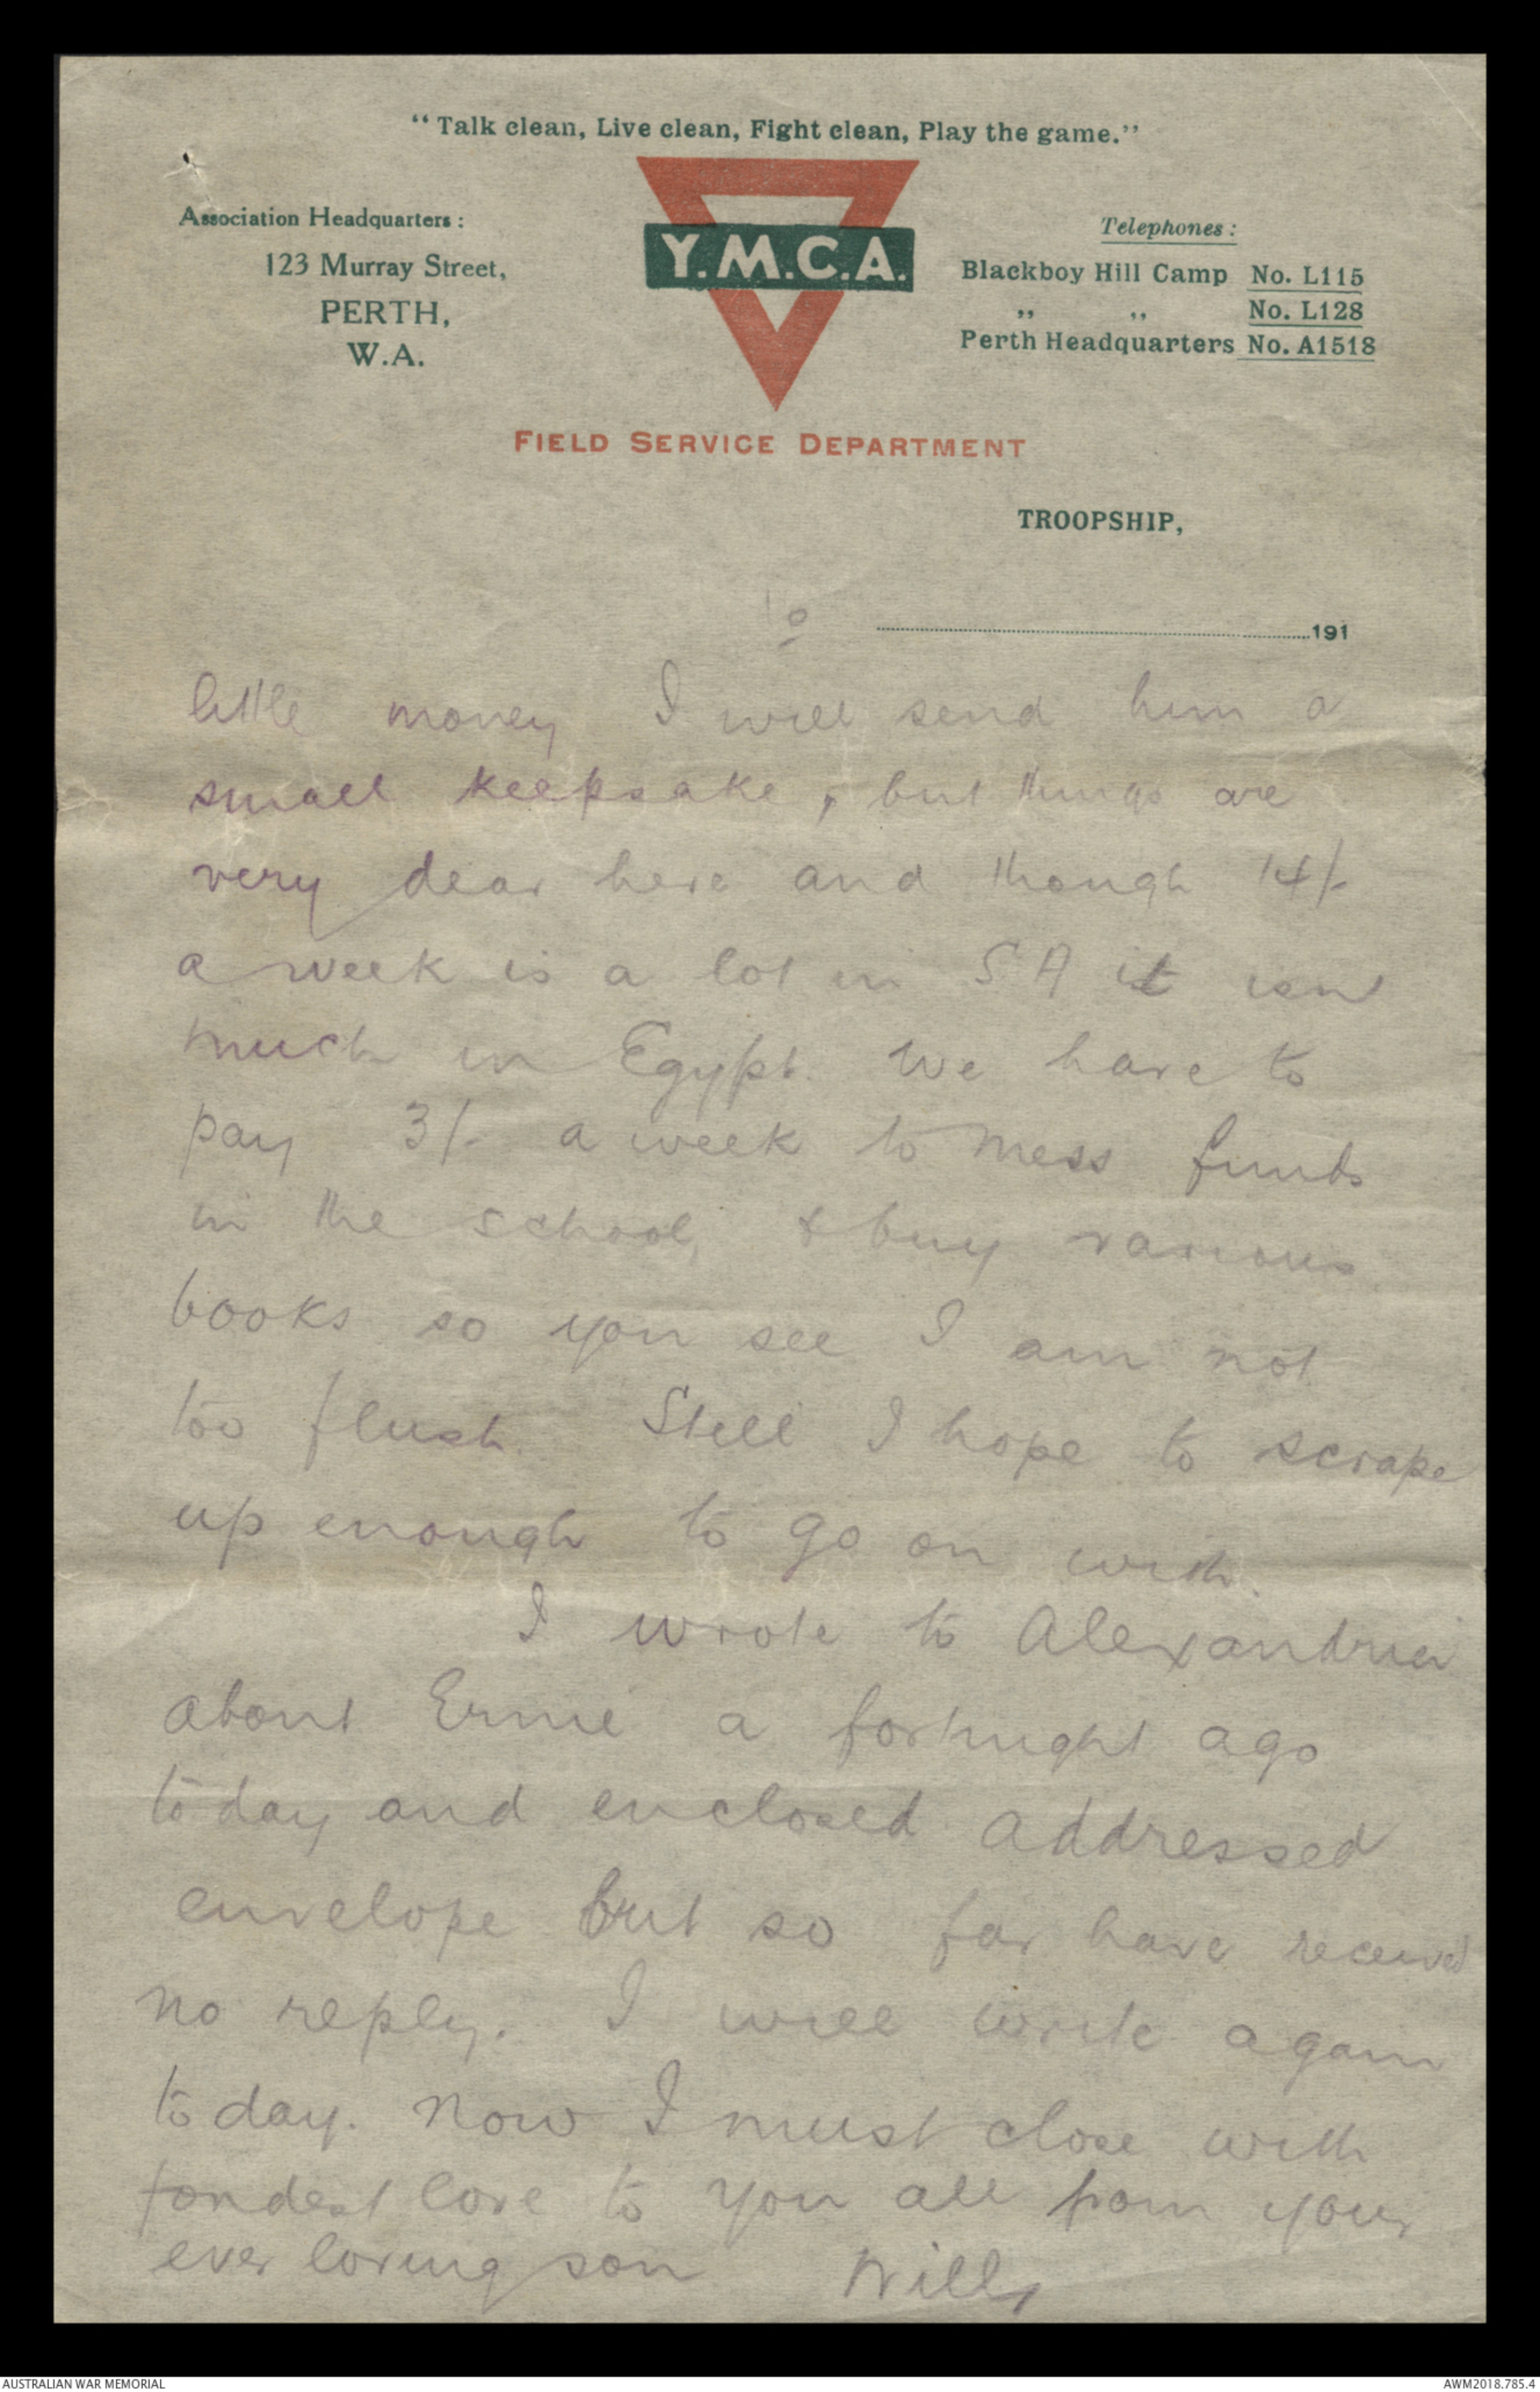 “Talk clean, Live clean, Fight clean, Play the game.”
Association Headquarters :
123 Murray Street,
PERTH,
W.A.
Y.M.C.A.
Telephones :
Blackboy Hill Camp No. L115
„ „ No. L128
Perth Headquarters No. A1518
FIELD SERVICE DEPARTMENT
TROOPSHIP,
191
little money I will send him a
small keepsake, but things are
very dear here and though 14/-
a week is a lot in SA it isnt
much in Egypt. We have to
pay 3/- a week to mess funds
in the school, & buy various
books so you see I am not
too flush. Still I hope to scrape
up enough to go on with.
I wrote to Alexandria
about Ernie a fortnight ago
today and enclosed addressed
envelope but so far have received
no reply. I will write again
today. Now I must close with
fondest love to you all from your
ever loving son Will
AUSTRALIAN WAR MEMORIAL
AWM2018.785.4